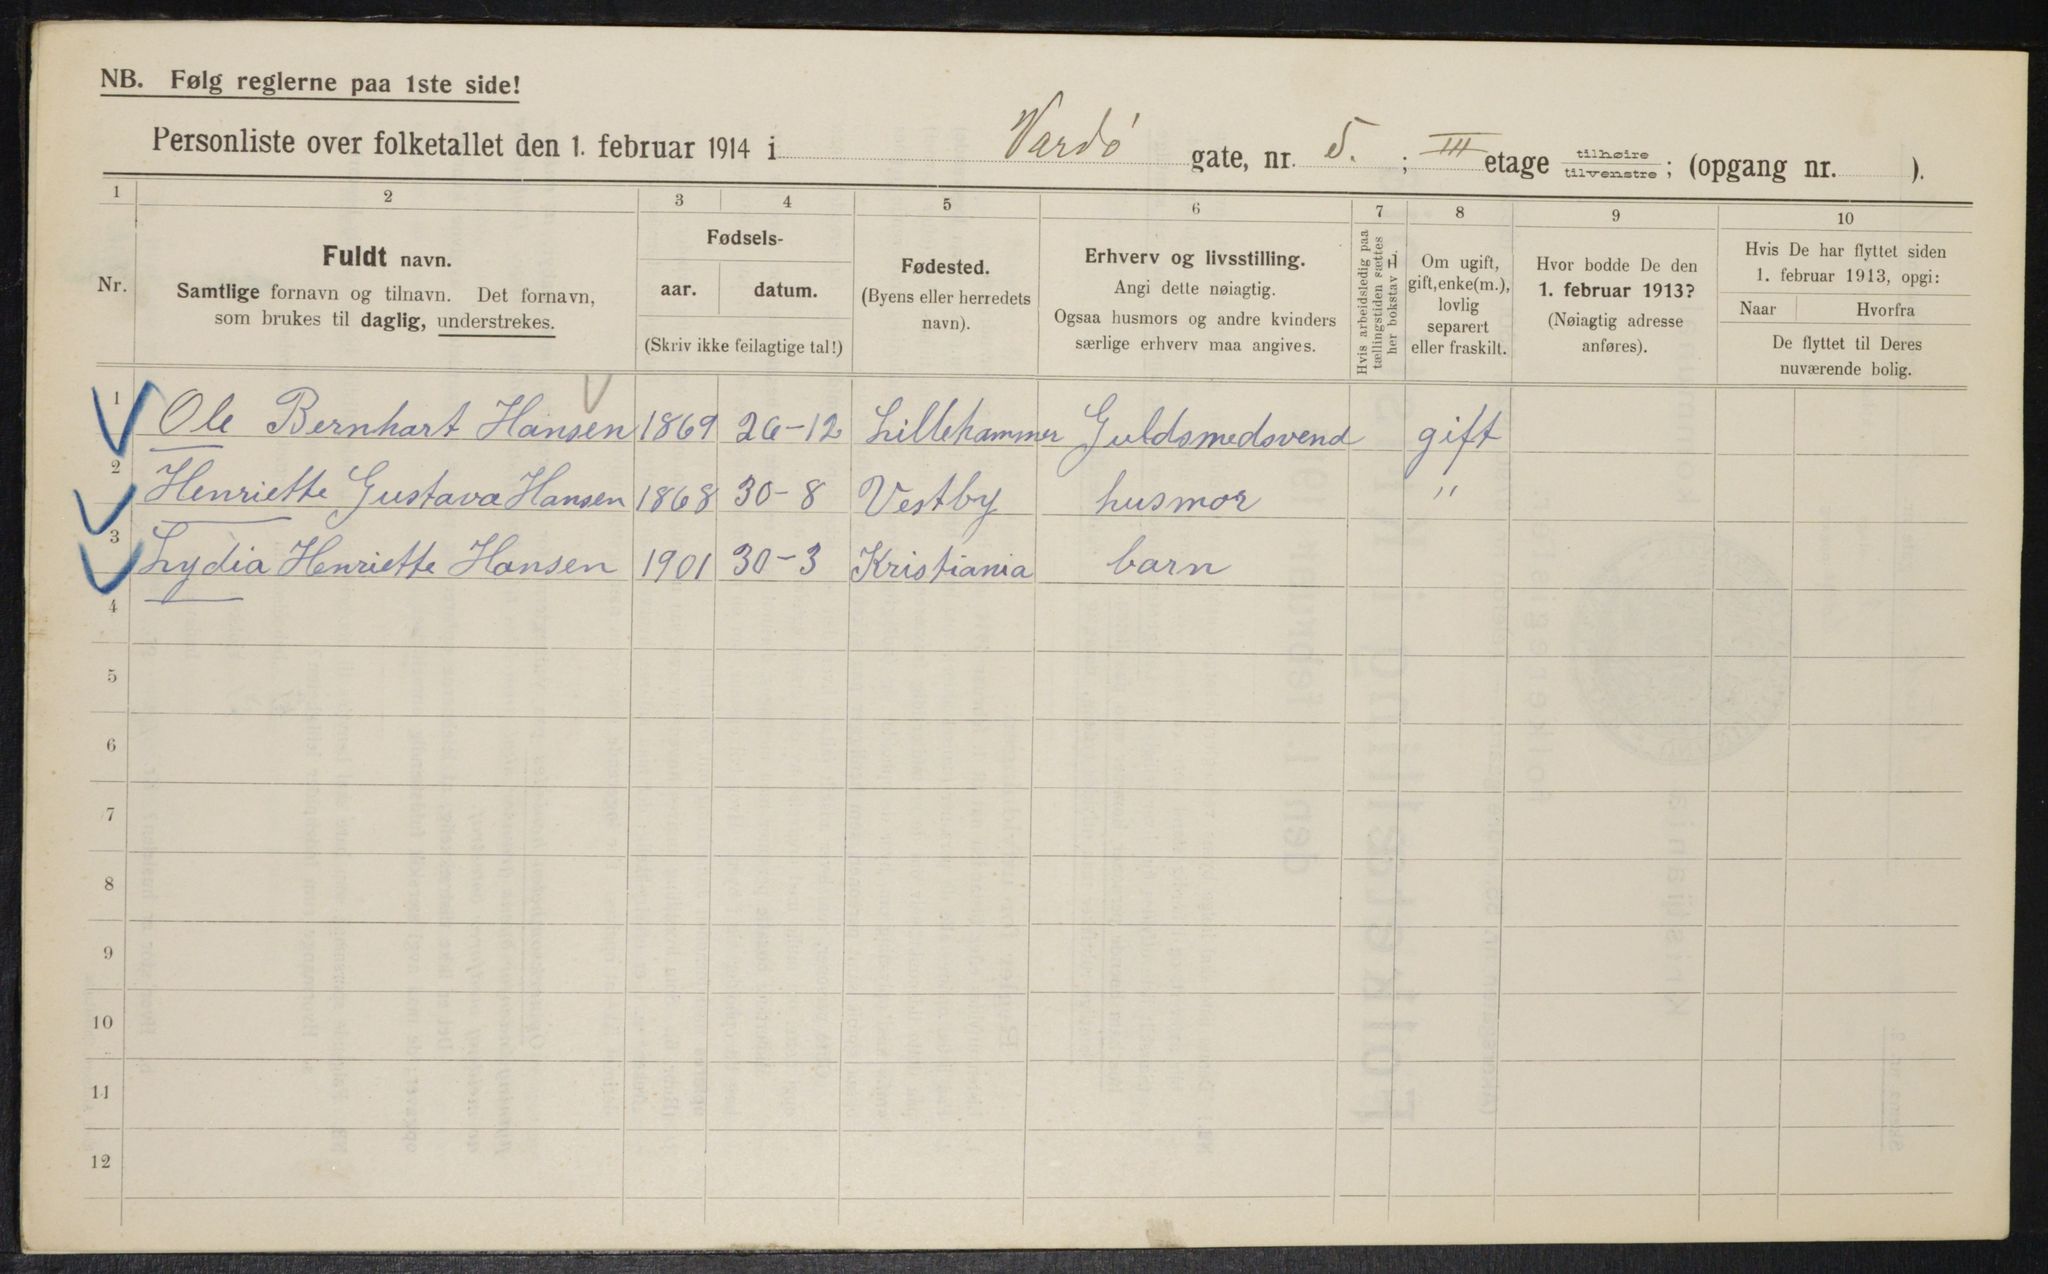 NB. Følg reglerne paa 1ste side!
Personliste over folketallet den 1. februar 1914 i Vardö gate, nr. 5. ; III etage tilhøire tilvenstre ; (opgang nr. ).
1 2 3 4 5 6 7 8 9 10
Nr.
Fuldt navn.
Samtlige fornavn og tilnavn. Det fornavn,
som brukes til daglig, understrekes.
Fødsels-
aar. datum.
(Skriv ikke feilagtige tal!)
Fødested.
(Byens eller herredets
navn).
Erhverv og livsstilling.
Angi dette nøiagtig.
Ogsaa husmors og andre kvinders
særlige erhverv maa angives.
Hvis arbeidsledig paa
tællingstiden sættes
her bokstav
Om ugift,
gift, enke(m.),
lovlig
separert
eller fraskilt.
Hvor bodde De den
1. februar 1913?
(Nøiagtig adresse
anføres).
Hvis De har flyttet siden
1. februar 1913, opgi:
Naar Hvorfra
De flyttet til Deres
nuværende bolig.
1 Ole Bernhart Hansen 1869 26-12 Lillehammer Guldsmedsvend gift
2 Henriette Gustava Hansen 1868 30-8 Vestby husmor "
3 Lydia Henriette Hansen 1901 30-3 Kristiania barn
4
5
6
7
8
9
10
11
12